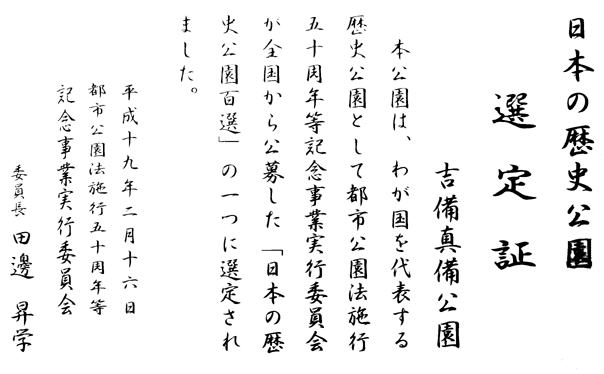 日本の歴史公園
選定証
吉備真備公園
本公園は、わが国を代表する
歴史公園として都市公園法施行
五十周年等記念事業実行委員会
が全国から公募した「日本の歴
史公園百選」の一つに選定され
ました。
平成十九年二月十六日
都市公園法施行五十周年等
記念事業実行委員会
委員長 田邊 昇学